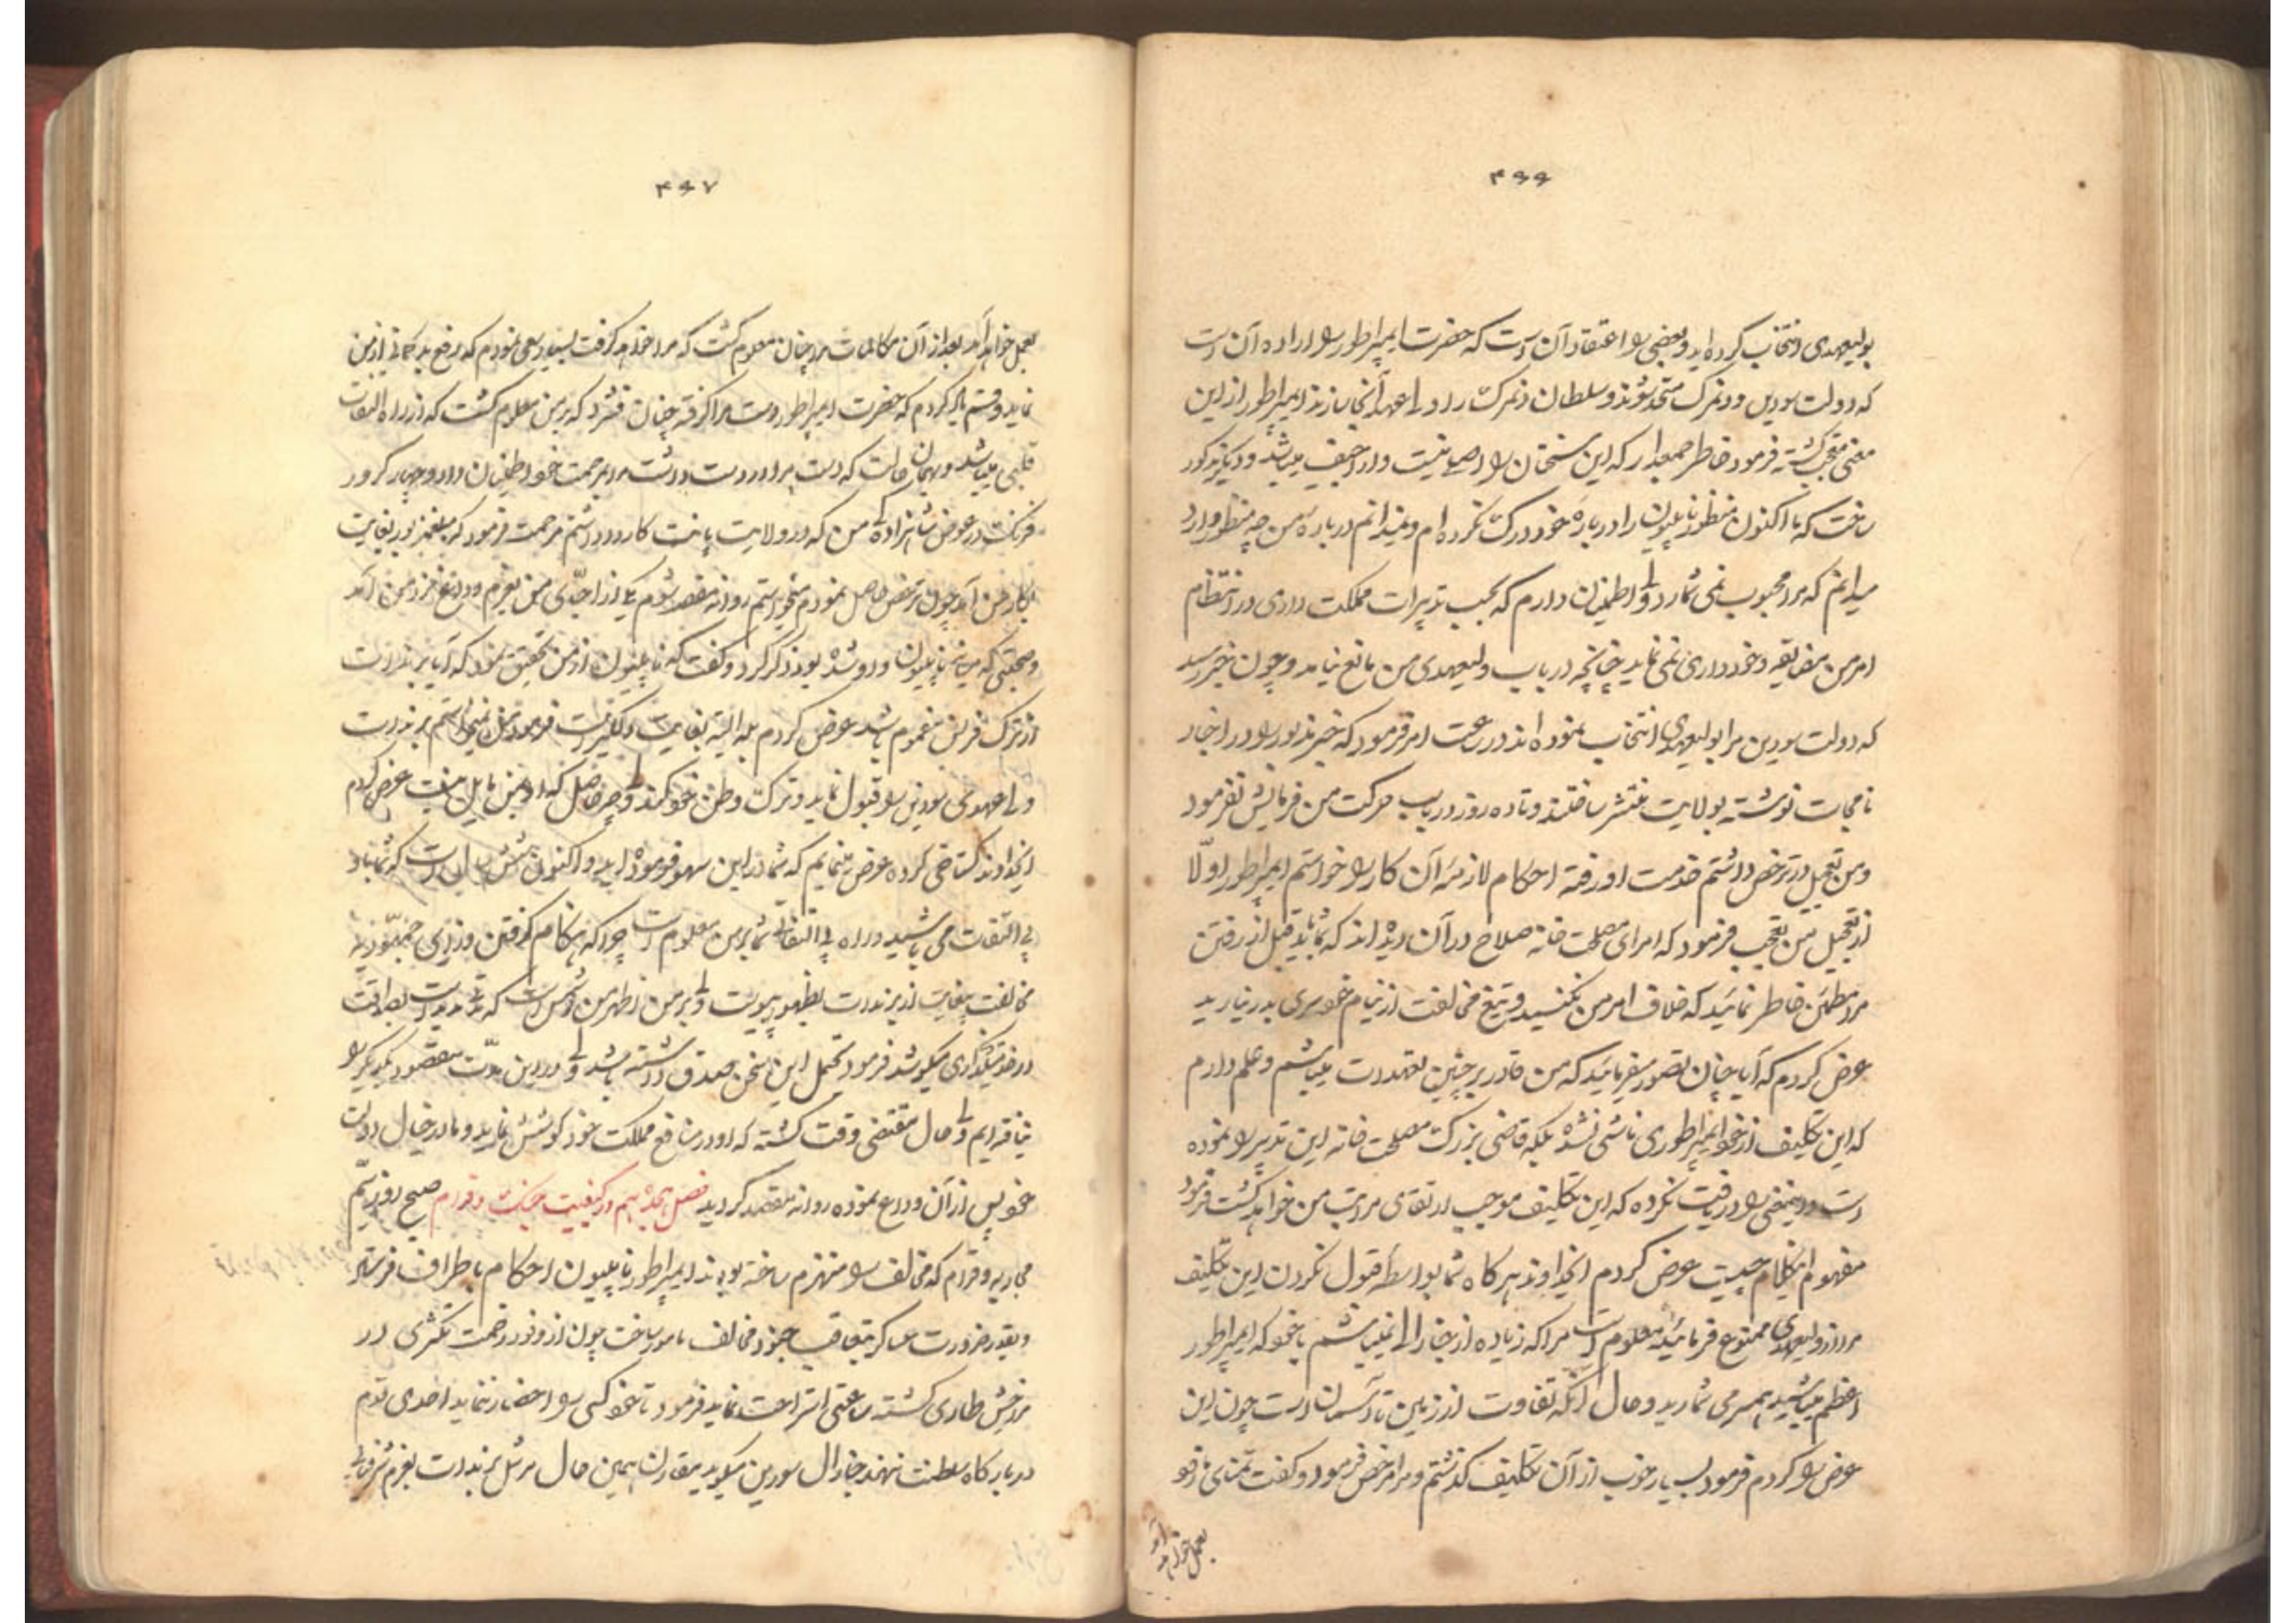 ۴۶۶
بولیعهدی انتخاب کرده اید و بعضی را اعتقاد آن است که حضرت ایمپراطور را اراده آن است
که دولت سودین و دنمرک متحد شوند و سلطان دنمرک را ولی اعهد آنجا سازند ایمپراطور از این
معنی متعجب گشته فرمود خاطر جمعدار که این سخنان را اصلی نیست و اراجیف میباشد و دیگر مذکور
ساخت که تا اکنون منظور ناپلیون را درباره خود درک نکرده ام و نمیدانم درباره من چه منظور دارد
میدانم که مرا محبوب نمی شمارد ولی اطمینان دارم که بحسب تدبیرات مملکت داری در انتظام
امر من مضایقه و خودداری نمی نماید چنانچه در باب ولیعهدی من مانع نیامد و چون خبر رسید
که دولت سودین مرا بولیعهدی انتخاب نموده اند در ساعت امر فرمود که خبر مزبور را در اخبار
نامجات نوشته بولایت منتشر ساختند و تا ده روز در باب حرکت من فرمایش نفرمود
و من تعجیل در ترخص داشتم خدمت او رفته احکام لازمه آن کار را خواستم ایمپراطور اولا
از تعجیل من تعجب فرمود که امرای مصلحت خانه صلاح در آن دیده اند که شما باید قبل از رفتن
مرا مطمئن خاطر نمائید که خلاف امر من نکنید و تیغ مخالفت از نیام خودسری بدر نیارید
عرض کردم که آیا چنان تصور میفرمائید که من قادر بر چنین تعهدات میباشم و علم دارم
که این تکلیف از خود ایمپراطوری ناشی نشده بلکه قاضی بزرگ مصلحت خانه این تدبیر را نموده
است و اینمعنی را دریافت نکرده که این تکلیف موجب ارتقای مراتب من خواهد گشت فرمود
مفهوم اینکلام چیست عرض کردم ایخداوند هرگاه شما بواسطه قبول نکردن این تکلیف
مرا از ولیعهدی ممنوع فرمائید معلوم است مرا که زیاده از جنارالی نمیباشم با خود که ایمپراطور
اعظم میباشید همسر می شمارید و حال آنکه تفاوت از زمین تا آسمان است چون این
عرض را کردم فرمود بسیار خوب از آن تکلیف گذشتم و مرا مرخص فرمود و گفت تمنای تو
بعمل خواهد آمد
۴۶۷
بعمل خواهد آمد بعد از آن مکالمات مرا چنان معلوم گشت که مرا خواهد گرفت بسیار سعی نمودم که رفع بدگمانی از من
نماید و قسم یاد کردم که حضرت ایمپراطور دست مرا گرفته چنان فشرد که بر من معلوم گشت که از راه التفات
قلبی میباشد و بهمان حالت که دست مرا در دست داشت مرا بمرحمت خود اطمینان داد و چهار کرور
فرنک در عوض شاهزاده گی من که در ولایت پانت کارود داشتم مرحمت فرمود که مبلغ مزبور بغایت
بکار من آمد چون ترخص حاصل نمودم میخواستم روانه مقصد شوم یکی از احبای من بعزم وداع نزد من آمد
و صحبتی که میانه ناپلیون و او شده بود ذکر کرد و گفت که ناپلیون از من تحقیق نمود که آیا برندات
از ترک فرنس مغموم باشد عرض کردم بله البته بغایت دلگیر است فرمود من نمیخواستم برندات
ولی عهدی سودین را قبول نماید و ترک وطن خود کند ولی چه حاصل که او بمن مایل نیست عرض کردم
ایخداوند گستاخی کرده عرض مینمایم که شما در این سهو فرموده اید و اکنون شش سال است که شما با او
بی التفات می باشید و راه بی التفاتی شما بر من معلوم است چرا که هنگام گرفتن وزرای جمهوریه
مخالفت بغایت از برندات بظهور پیوست ولی بر من اظهر من الشمس است که مدتیست بصداقت
در خدمتگذاری میکوشد فرمود تحمل این سخن صدق داشته باشد ولی در این مدت مقصود یکدیگر را
نیافته ایم ولی حال مقتضی وقت گشته که او در منافع مملکت خود کوشش نماید و ما در خیال دولت
خود پس از آن وداع نموده روانه مقصد گردید فصل هجدهم در کیفیت جنگ وقرام صبح روز ششم
محاربه وقرام که مخالف را منهزم ساخته بودند ایمپراطور ناپلیون احکام باطراف فرستاد
و بقدر ضرورت عساکر بتعاقب جنود مخالف مامور ساخت چون از وفور زحمت تکثری در
مزاجش طاری گشته ساعتی استراحت نماید فرمود تا خود کسی را احضار ننماید احدی قدم
در بارگاه سلطنت ننهد جنارال سودین میگوید مقارن همین حال مرشل برندات بعزم شرفیابی